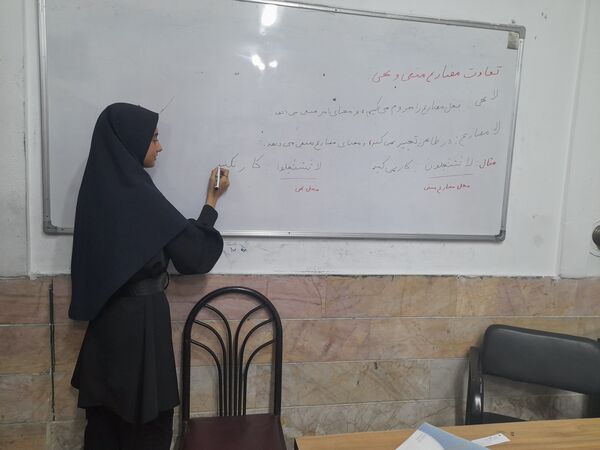 تفاوت مضارع منفی و نهی
لا نهی: فعل مضارع را مجزوم می‌کنیم، و معنای امر منفی می‌دهد.
لا مضارع: در ظاهر تغییر نمی‌کند، و معنای مضارع منفی می‌دهد.
مثال: لا تشتغلون کار نمی‌کنید لا تشتغلوا: کار نکنید
فعل مضارع منفی فعل نهی